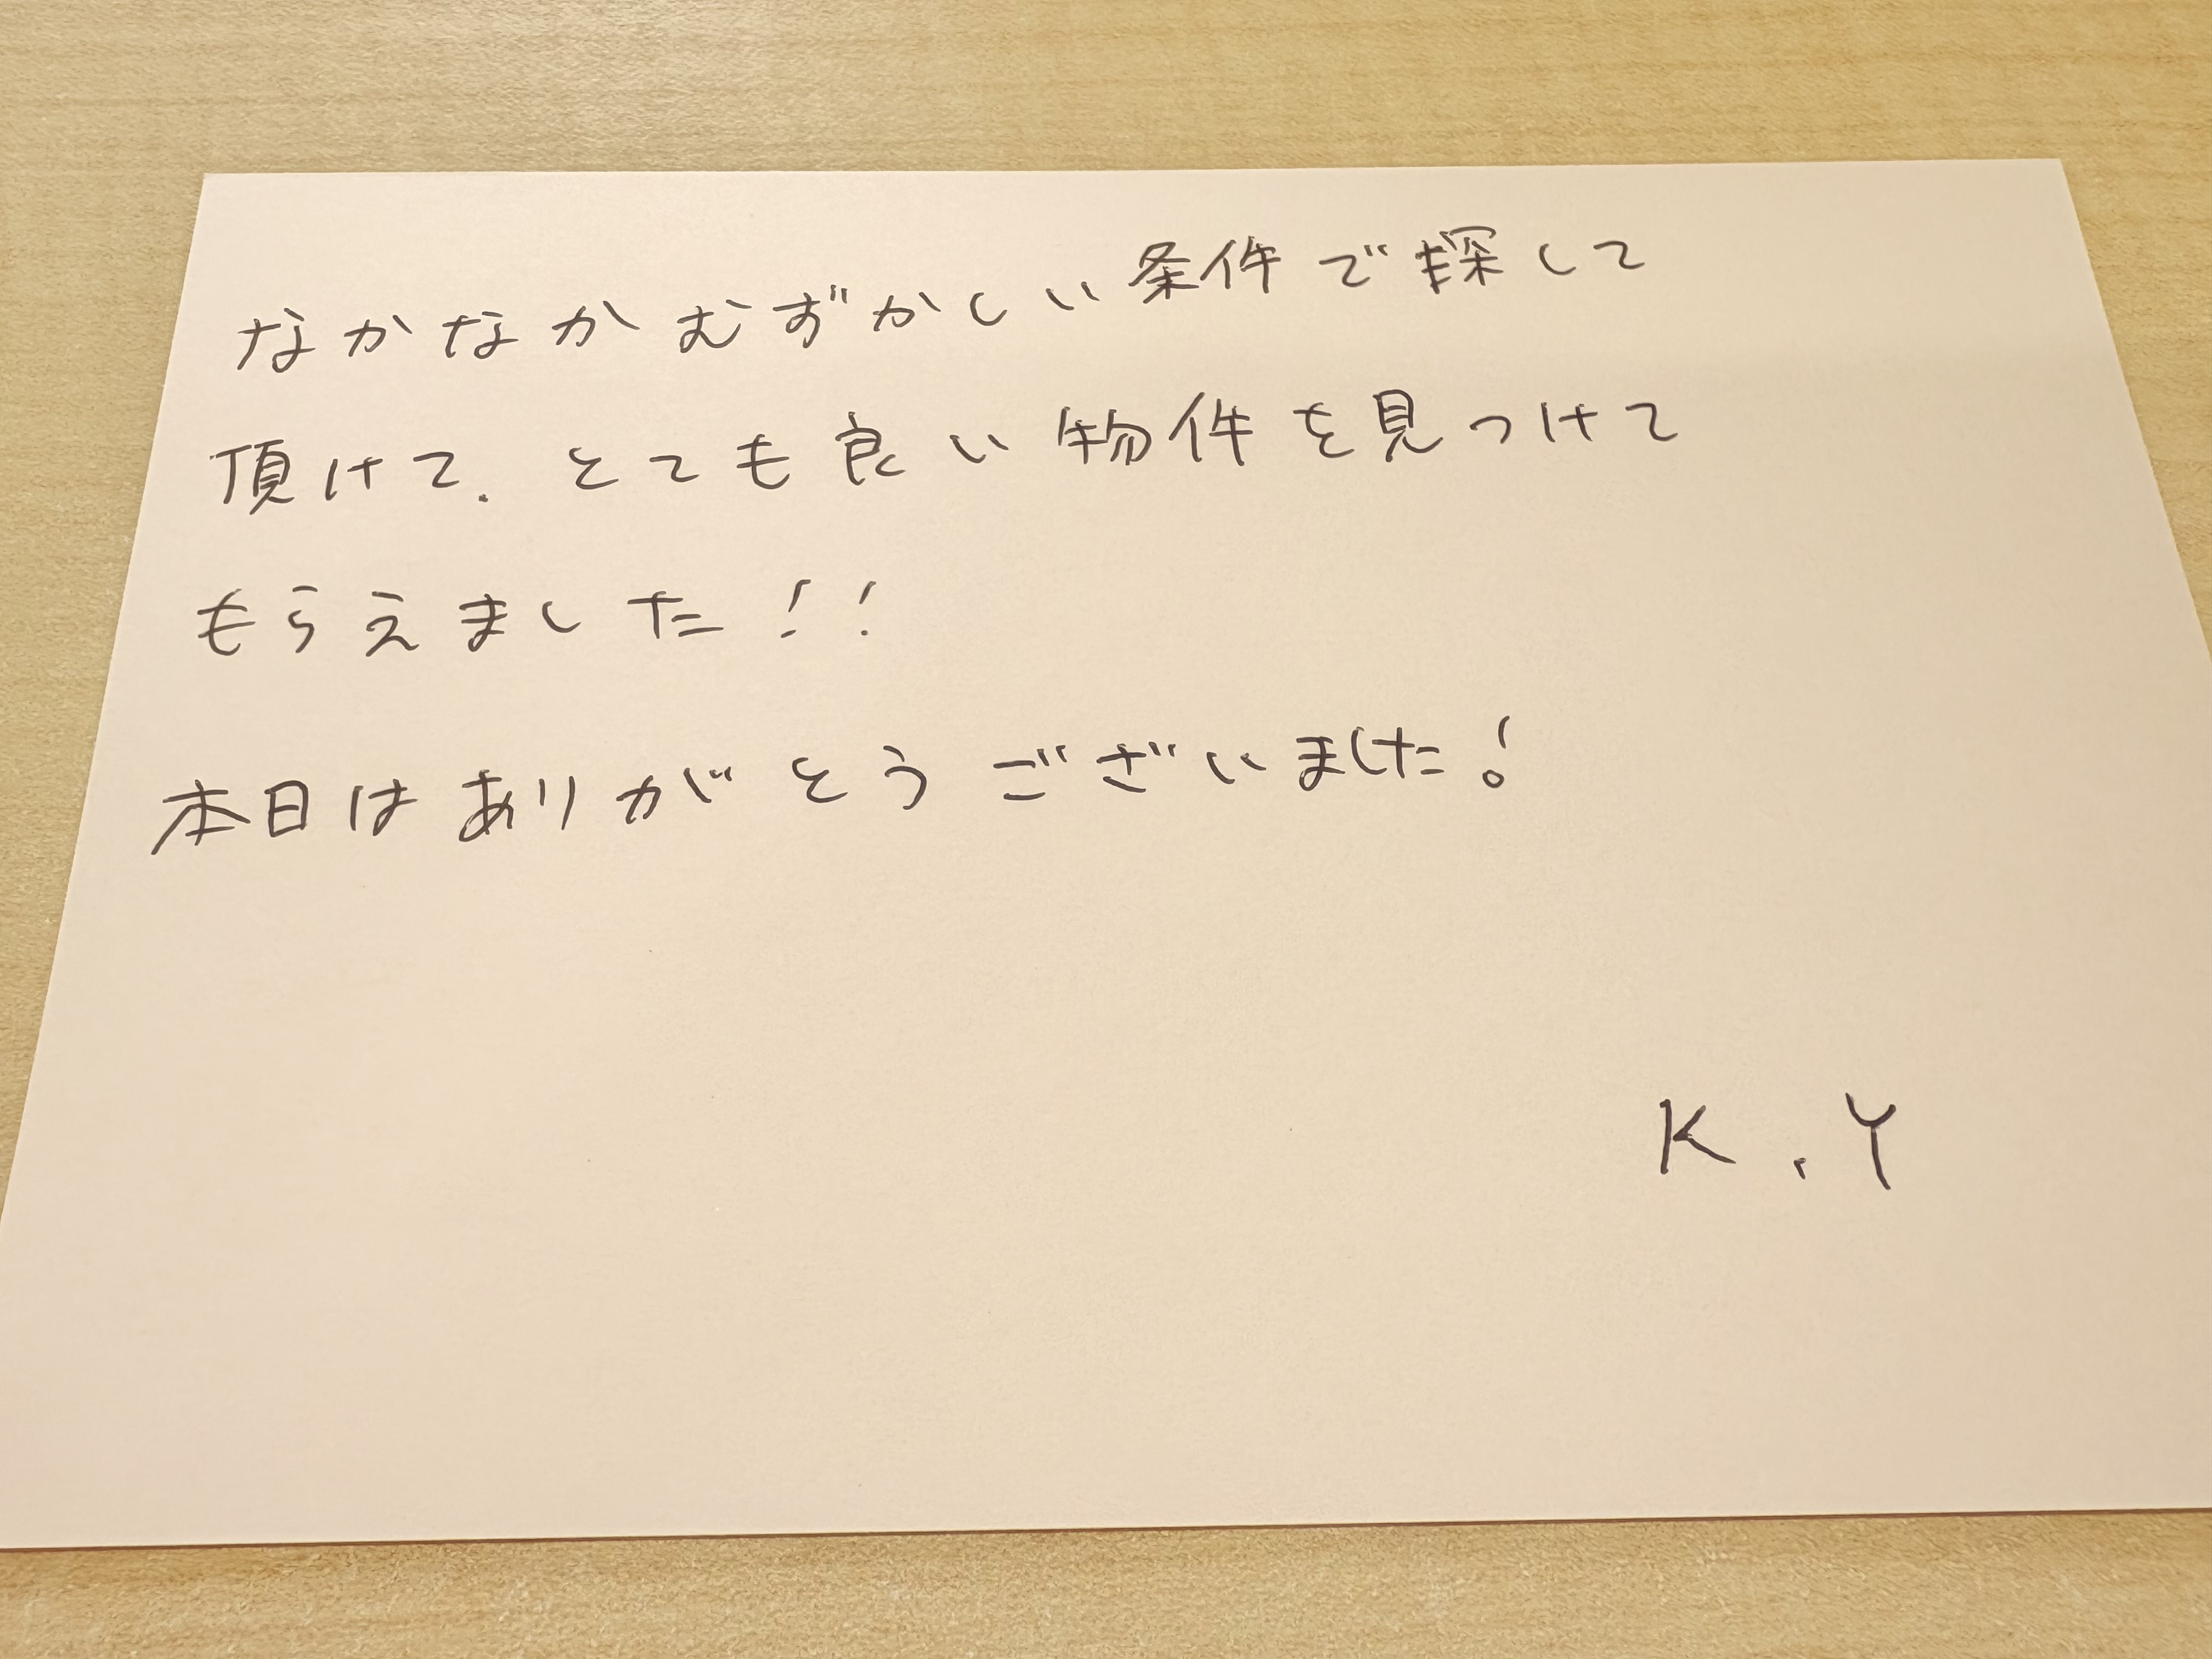 なかなかむずかしい条件で探して
頂けて、とても良い物件を見つけて
もらえました！！
本日はありがとうございました！
K.Y